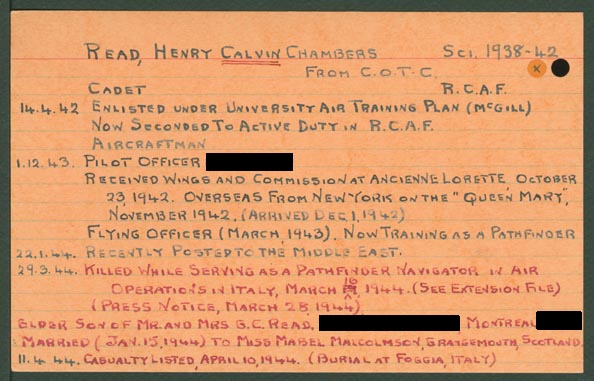 READ, HENRY CALVIN CHAMBERS SCI. 1938-42
FROM C.O.T.C.
CADET R.C.A.F.
14.4.42 ENLISTED UNDER UNIVERSITY AIR TRAINING PLAN (MCGILL)
NOW SECONDED TO ACTIVE DUTY IN R.C.A.F.
AIRCRAFTMAN
1.12.43. PILOT OFFICER
RECEIVED WINGS AND COMMISSION AT ANCIENNE LORETTE, OCTOBER
23, 1942. OVERSEAS FROM NEW YORK ON THE "QUEEN MARY",
NOVEMBER 1942, (ARRIVED DEC 1, 1942)
FLYING OFFICER (MARCH, 1943). NOW TRAINING AS A PATHFINDER
22.1.44. RECENTLY POSTED TO THE MIDDLE EAST.
29.3.44. KILLED WHILE SERVING AS A PATHFINDER NAVIGATOR IN AIR
OPERATIONS IN ITALY, MARCH 16, 1944. (SEE EXTENSION FILE)
(PRESS NOTICE, MARCH 28, 1944)
ELDER SON OF MR. AND MRS G.C. READ, MONTREAL
MARRIED (JAN. 15, 1944) TO MISS MABEL MALCOLMSON, GRANGEMOUTH, SCOTLAND.
11.4.44. CASUALTY LISTED, APRIL 10, 1944. (BURIAL AT FOGGIA, ITALY)